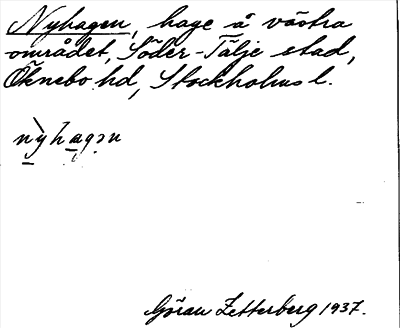 Nyhagen, hage å västra
området, Söder-Tälje stad,
Öknebo hd, Stockholms l.
nỳhagən
Göran Zetterberg 1937.